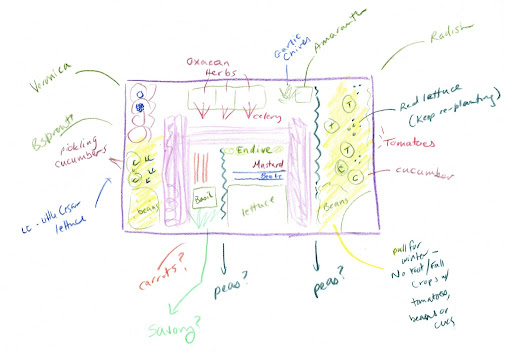 Oxacan
Herbs
Garlic
Chives
Amaranth
Radish
Veronica
celery
Red lettuce
(Keep re-planting)
BSprouts
pickling
cucumbers
Endive
Tomatoes
T
T
T
T
C
C
Mustard
Beets
cucumber
LC - little Cesar
lettuce
beans
Basil
lettuce
Beans
carrots?
peas?
peas?
Savory?
pull for
winter -
No root/fall
crops w/
tomatoes,
beans or
cucs